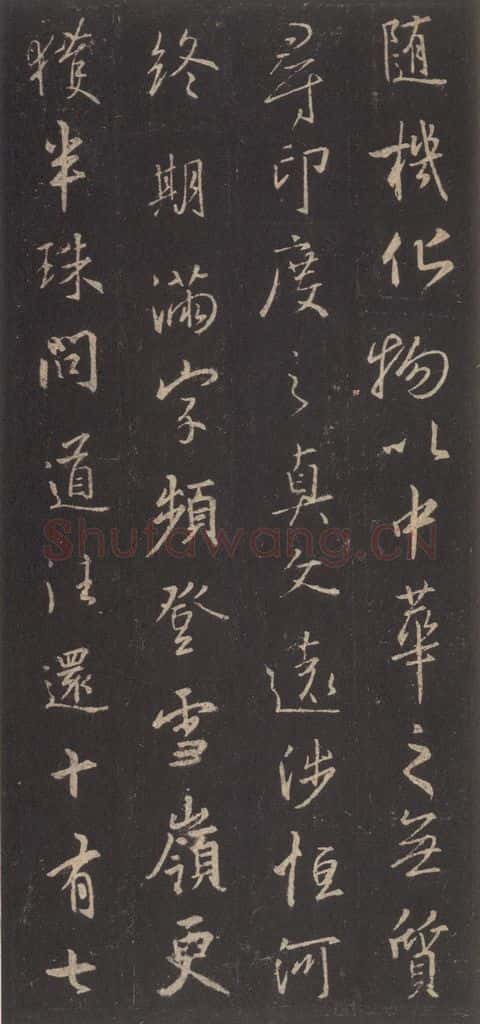 随機化物以中華之無質
尋印度之真文遠涉恒河
終期滿字頻登雪嶺更
獲半珠問道法還十有七
Shufawang.CN